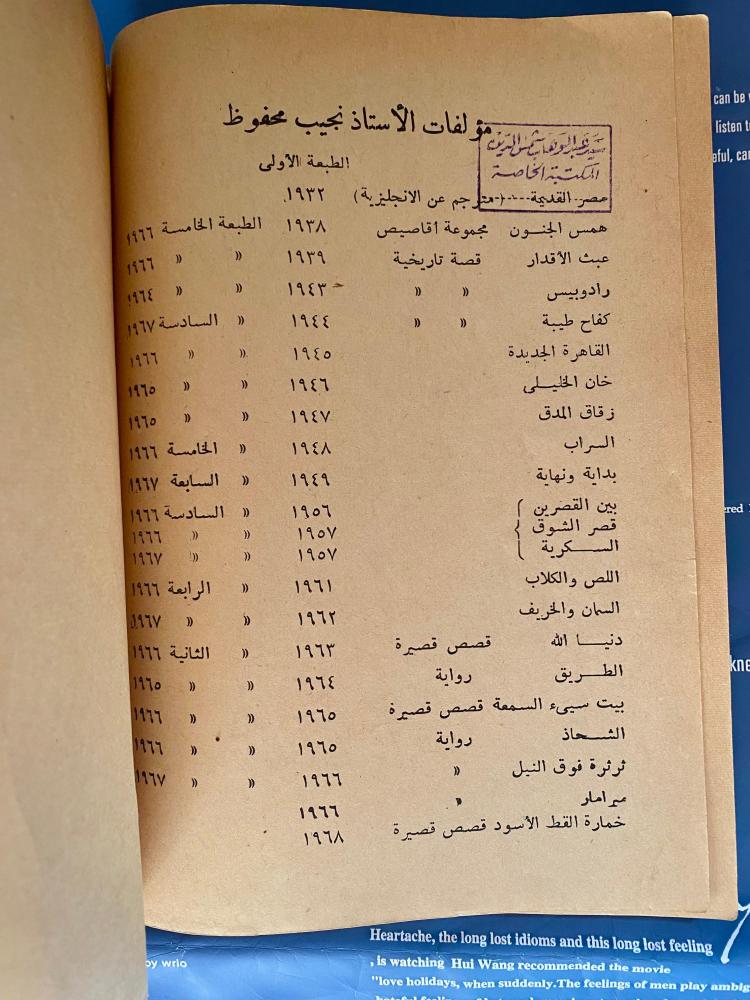 مؤلفات الأستاذ نجيب محفوظ
المكتبة الخاصة
الطبعة الأولى
مصر القديمة (مترجم عن الانجليزية) ١٩٣٢
همس الجنون مجموعة أقاصيص ١٩٣٨ الطبعة الخامسة ١٩٦٦
عبث الأقدار قصة تاريخية ١٩٣٩ » » ١٩٦٦
رادوبيس » » ١٩٤٣ » » ١٩٦٤
كفاح طيبة » » ١٩٤٤ » السادسة ١٩٦٧
القاهرة الجديدة ١٩٤٥ » » ١٩٦٦
خان الخليلى ١٩٤٦ » » ١٩٦٥
زقاق المدق ١٩٤٧ » » ١٩٦٥
السراب ١٩٤٨ » الخامسة ١٩٦٦
بداية ونهاية ١٩٤٩ » السابعة ١٩٦٧
بين القصرين ١٩٥٦ » السادسة ١٩٦٦
قصر الشوق ١٩٥٧ » » ١٩٦٦
السكرية ١٩٥٧ » » ١٩٦٧
اللص والكلاب ١٩٦١ » الرابعة ١٩٦٦
السمان والخريف ١٩٦٢ » » ١٩٦٧
دنيا الله قصص قصيرة ١٩٦٣ » الثانية ١٩٦٦
الطريق رواية ١٩٦٤ » » ١٩٦٥
بيت سيىء السمعة قصص قصيرة ١٩٦٥ » » ١٩٦٦
الشحاذ رواية ١٩٦٥ » » ١٩٦٦
ثرثرة فوق النيل » ١٩٦٦ » » ١٩٦٧
ميرامار » ١٩٦٦
خمارة القط الأسود قصص قصيرة ١٩٦٨
can be
listen t
Heartache, the long lost idioms and this long lost feeling
, is watching Hui Wang recommended the movie
"love holidays, when suddenly.The feelings of men play